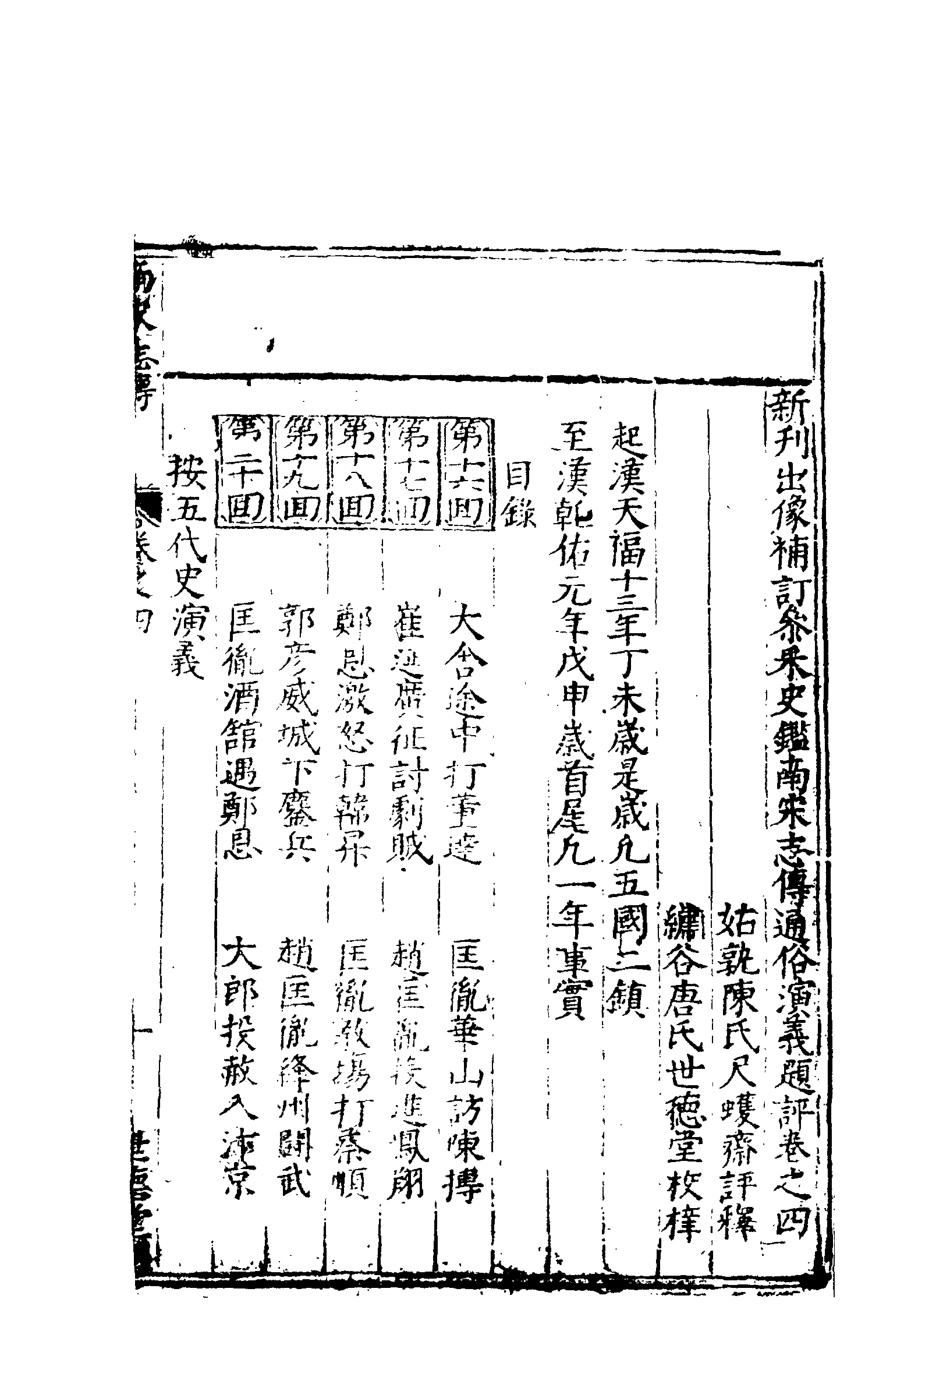 新刊出像補訂叅采史鑑南宋志傳通俗演義題評卷之四
姑孰陳氏尺蠖齋評釋
繡谷唐氏世德堂校梓
起漢天福十三年丁未歲是歲凡五國三鎮
至漢乾佑元年戊申歲首尾凡一年事實
目錄
第十六回 大舍途中打董達 匡胤華山訪陳摶
第十七回 崔廷廣征討劇賊 趙匡胤投進鳳翔
第十八回 鄭恩激怒打韓昇 匡胤教場打蔡順
第十九回 郭彥威城下鏖兵 趙匡胤絳州鬬武
第二十回 匡胤酒舘遇鄭恩 大郎投赦入汴京
按五代史演義
南宋志傳 卷之四 一 世德堂